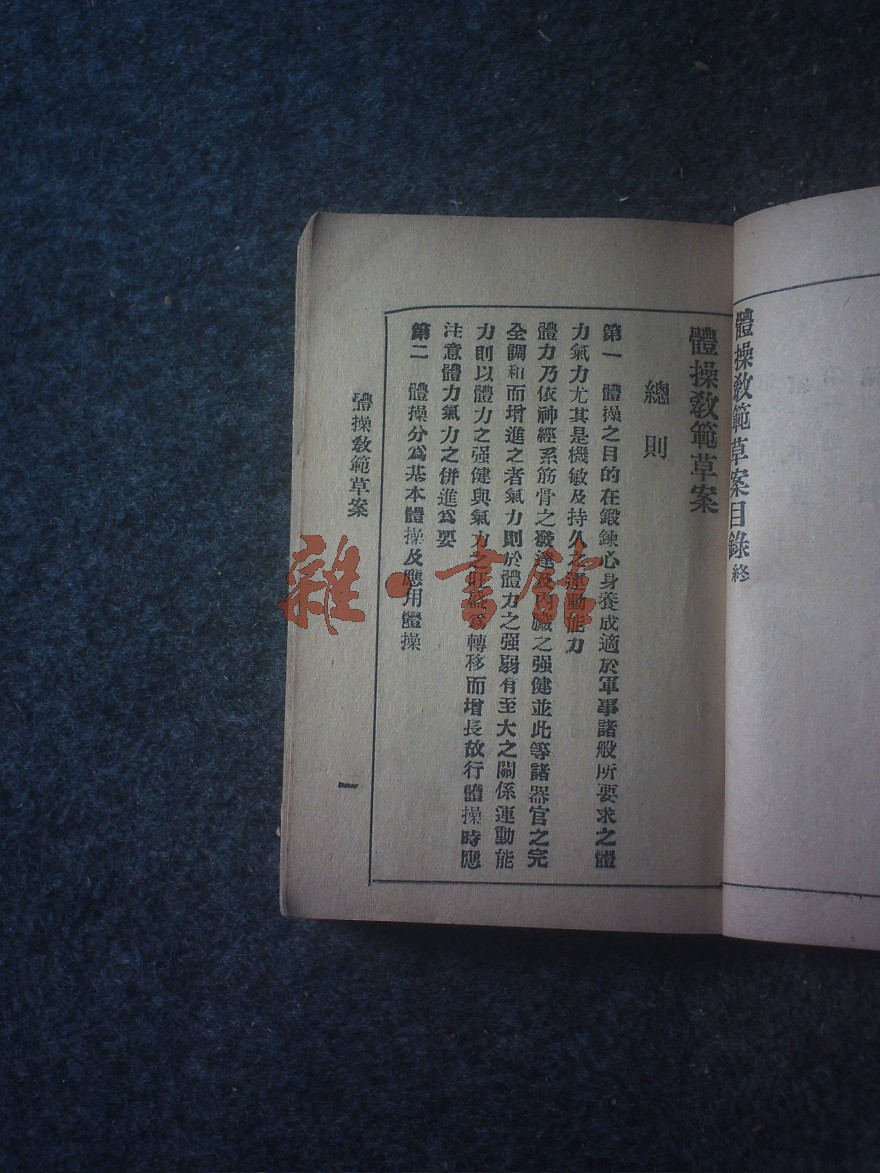 體操教範草案目錄終
體操教範草案
總則
第一 體操之目的在鍛鍊心身養成適於軍事諸般所要求之體
力氣力尤其是機敏及持久之運動能力
體力乃依神經系筋骨之發達及內臟之强健並此等諸器官之完
全調和而增進之者氣力則於體力之强弱有至大之關係運動能
力則以體力之强健與氣力之旺盛爲轉移而增長故行體操時應
注意體力氣力之併進爲要
第二 體操分爲基本體操及應用體操
體操教範草案
一
雜·書館